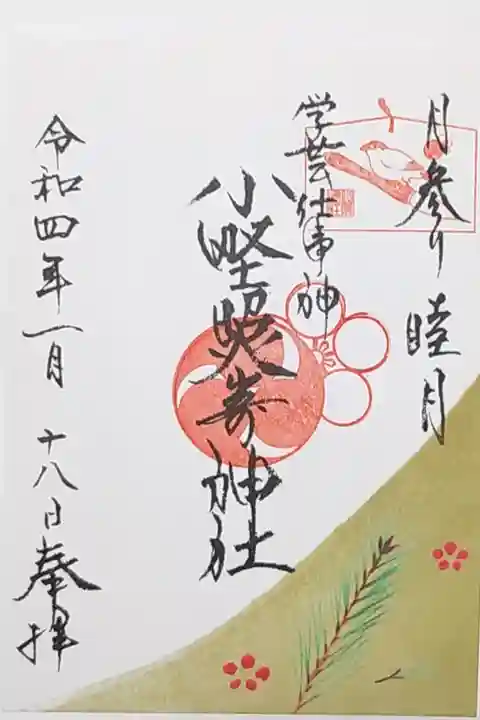 月参り 睦月
学芸仕事神
小野照崎神社
令和四年一月 十八日 奉拝